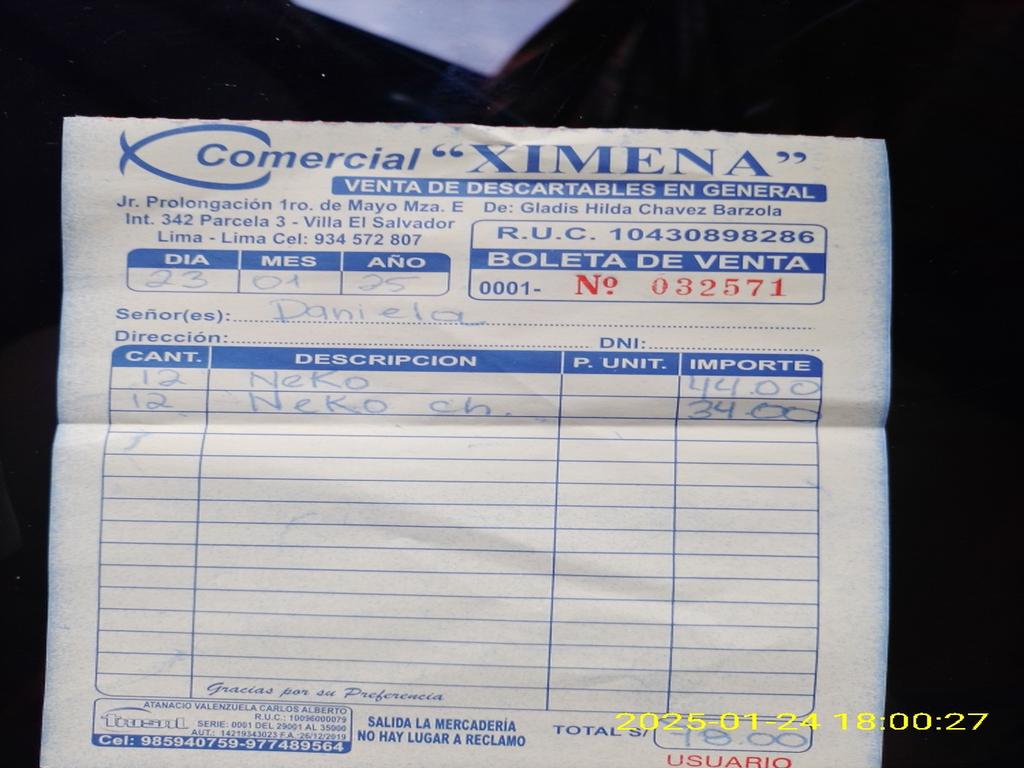 Comercial "XIMENA"
VENTA DE DESCARTABLES EN GENERAL
Jr. Prolongación 1ro. de Mayo Mza. E
Int. 342 Parcela 3 - Villa El Salvador
Lima - Lima Cel: 934 572 807
De: Gladis Hilda Chavez Barzola
R.U.C. 10430898286
BOLETA DE VENTA
0001- Nº 032571
DIA MES AÑO
23 01 25
Señor(es): Daniela
Dirección: DNI:
CANT. DESCRIPCION P. UNIT. IMPORTE
12 Neko 44.00
12 Neko ch. 34.00
Gracias por su Preferencia
ATANACIO VALENZUELA CARLOS ALBERTO
R.U.C.: 10096000079
SERIE: 0001 DEL 29001 AL 35000
AUT.: 14219343023 F.A.:26/12/2019
Cel: 985940759-977489564
SALIDA LA MERCADERÍA
NO HAY LUGAR A RECLAMO
TOTAL S/ 78.00
2025-01-24 18:00:27
USUARIO